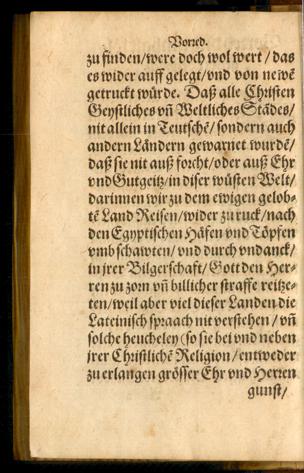 Vorred.
zu finden/were doch wol wert / das
es wider auff gelegt/vnd von newē
getruckt würde. Daß alle Christen
Geystliches vñ Weltliches Städes/
nit allein in Teutschē/sondern auch
andern Ländern gewarnet wurdē/
daß sie nit auß forcht/oder auß Ehr
vnd Gutgeitz/in diser wüsten Welt/
darinnen wir zu dem ewigen gelob-
tē Land Reisen/wider zu ruck/nach
den Egyptischen Häfen vnd Töpfen
vmb schawten/ vnd durch vndanck/
in jrer Bilgerschaft/ Gott den Her-
ren zu zorn vñ billicher straffe reitze-
ten/weil aber viel dieser Landen die
Lateinisch spraach nit verstehen / vñ
solche heucheley (so sie bei vnd neben
jrer Christlichē Religion/entweder
zu erlangen grösser Ehr vnd Herren
gunst/